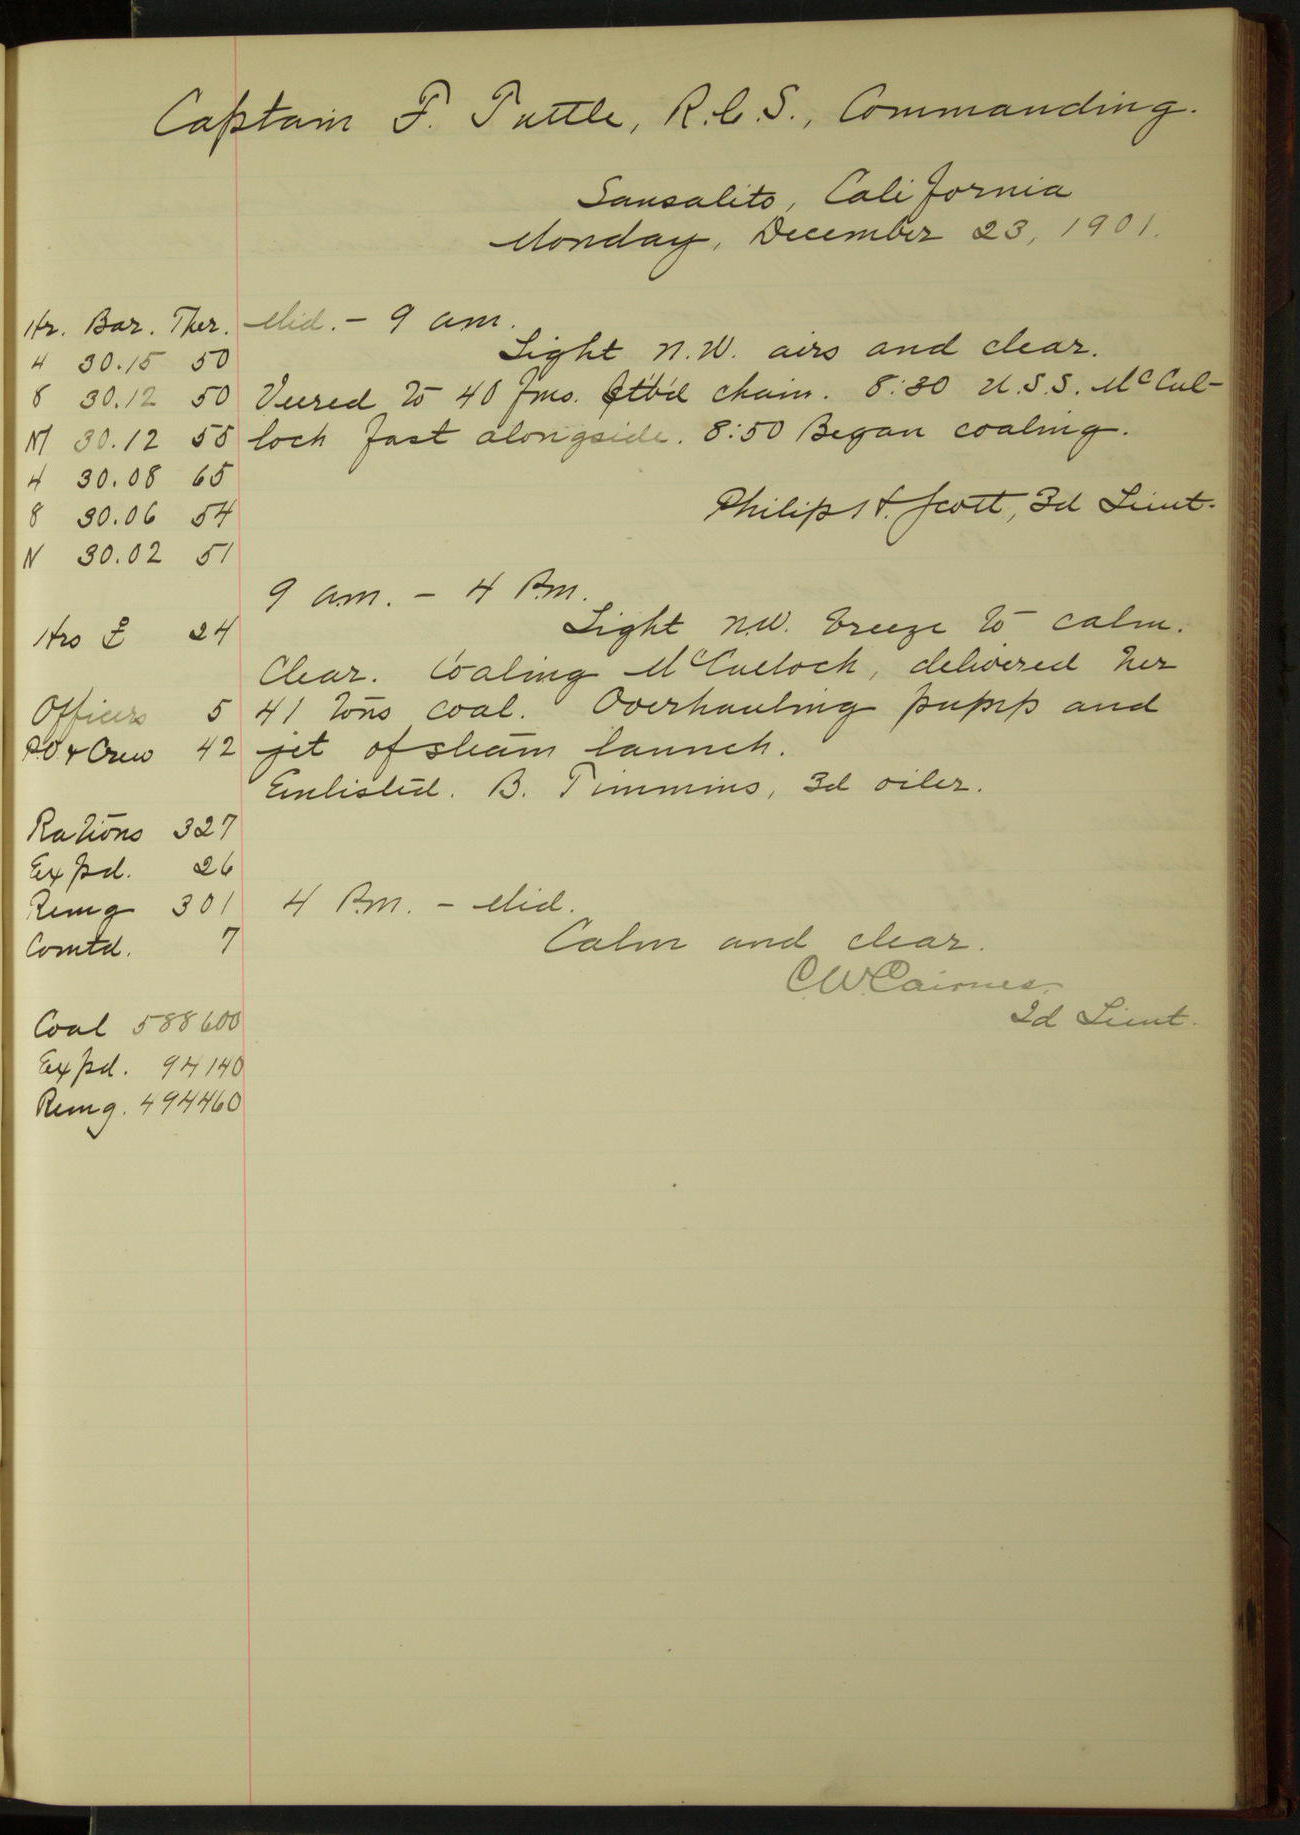 Captain F. Tuttle, R.C.S., Commanding.
Sausalito, California
Monday, December 23, 1901.
Hr. Bar. Ther.
4 30.15 50
8 30.12 50
M 30.12 55
4 30.08 65
8 30.06 54
N 30.02 51
Hrs 24
Officers 5
P.O. & Crew 42
Rations 327
Expd. 26
Remg 301
Comtd. 7
Coal 588600
Expd. 94140
Remg. 494460
Mid. - 9 am.
Light N.W. airs and clear.
Veered to 40 fms. Stb'd chain. 8:30 U.S.S. McCul-
loch fast alongside. 8:50 Began coaling.
Philip H. Scott, 3d Lieut.
9 a.m. - 4 P.m.
Light N.W. breeze to calm.
Clear. Coaling McCulloch, delivered her
41 tons coal. Overhauling pump and
jet of steam launch.
Enlisted. B. Timmins, 3d oiler.
4 P.m. - Mid.
Calm and clear.
C.W. Cairnes.
2d Lieut.